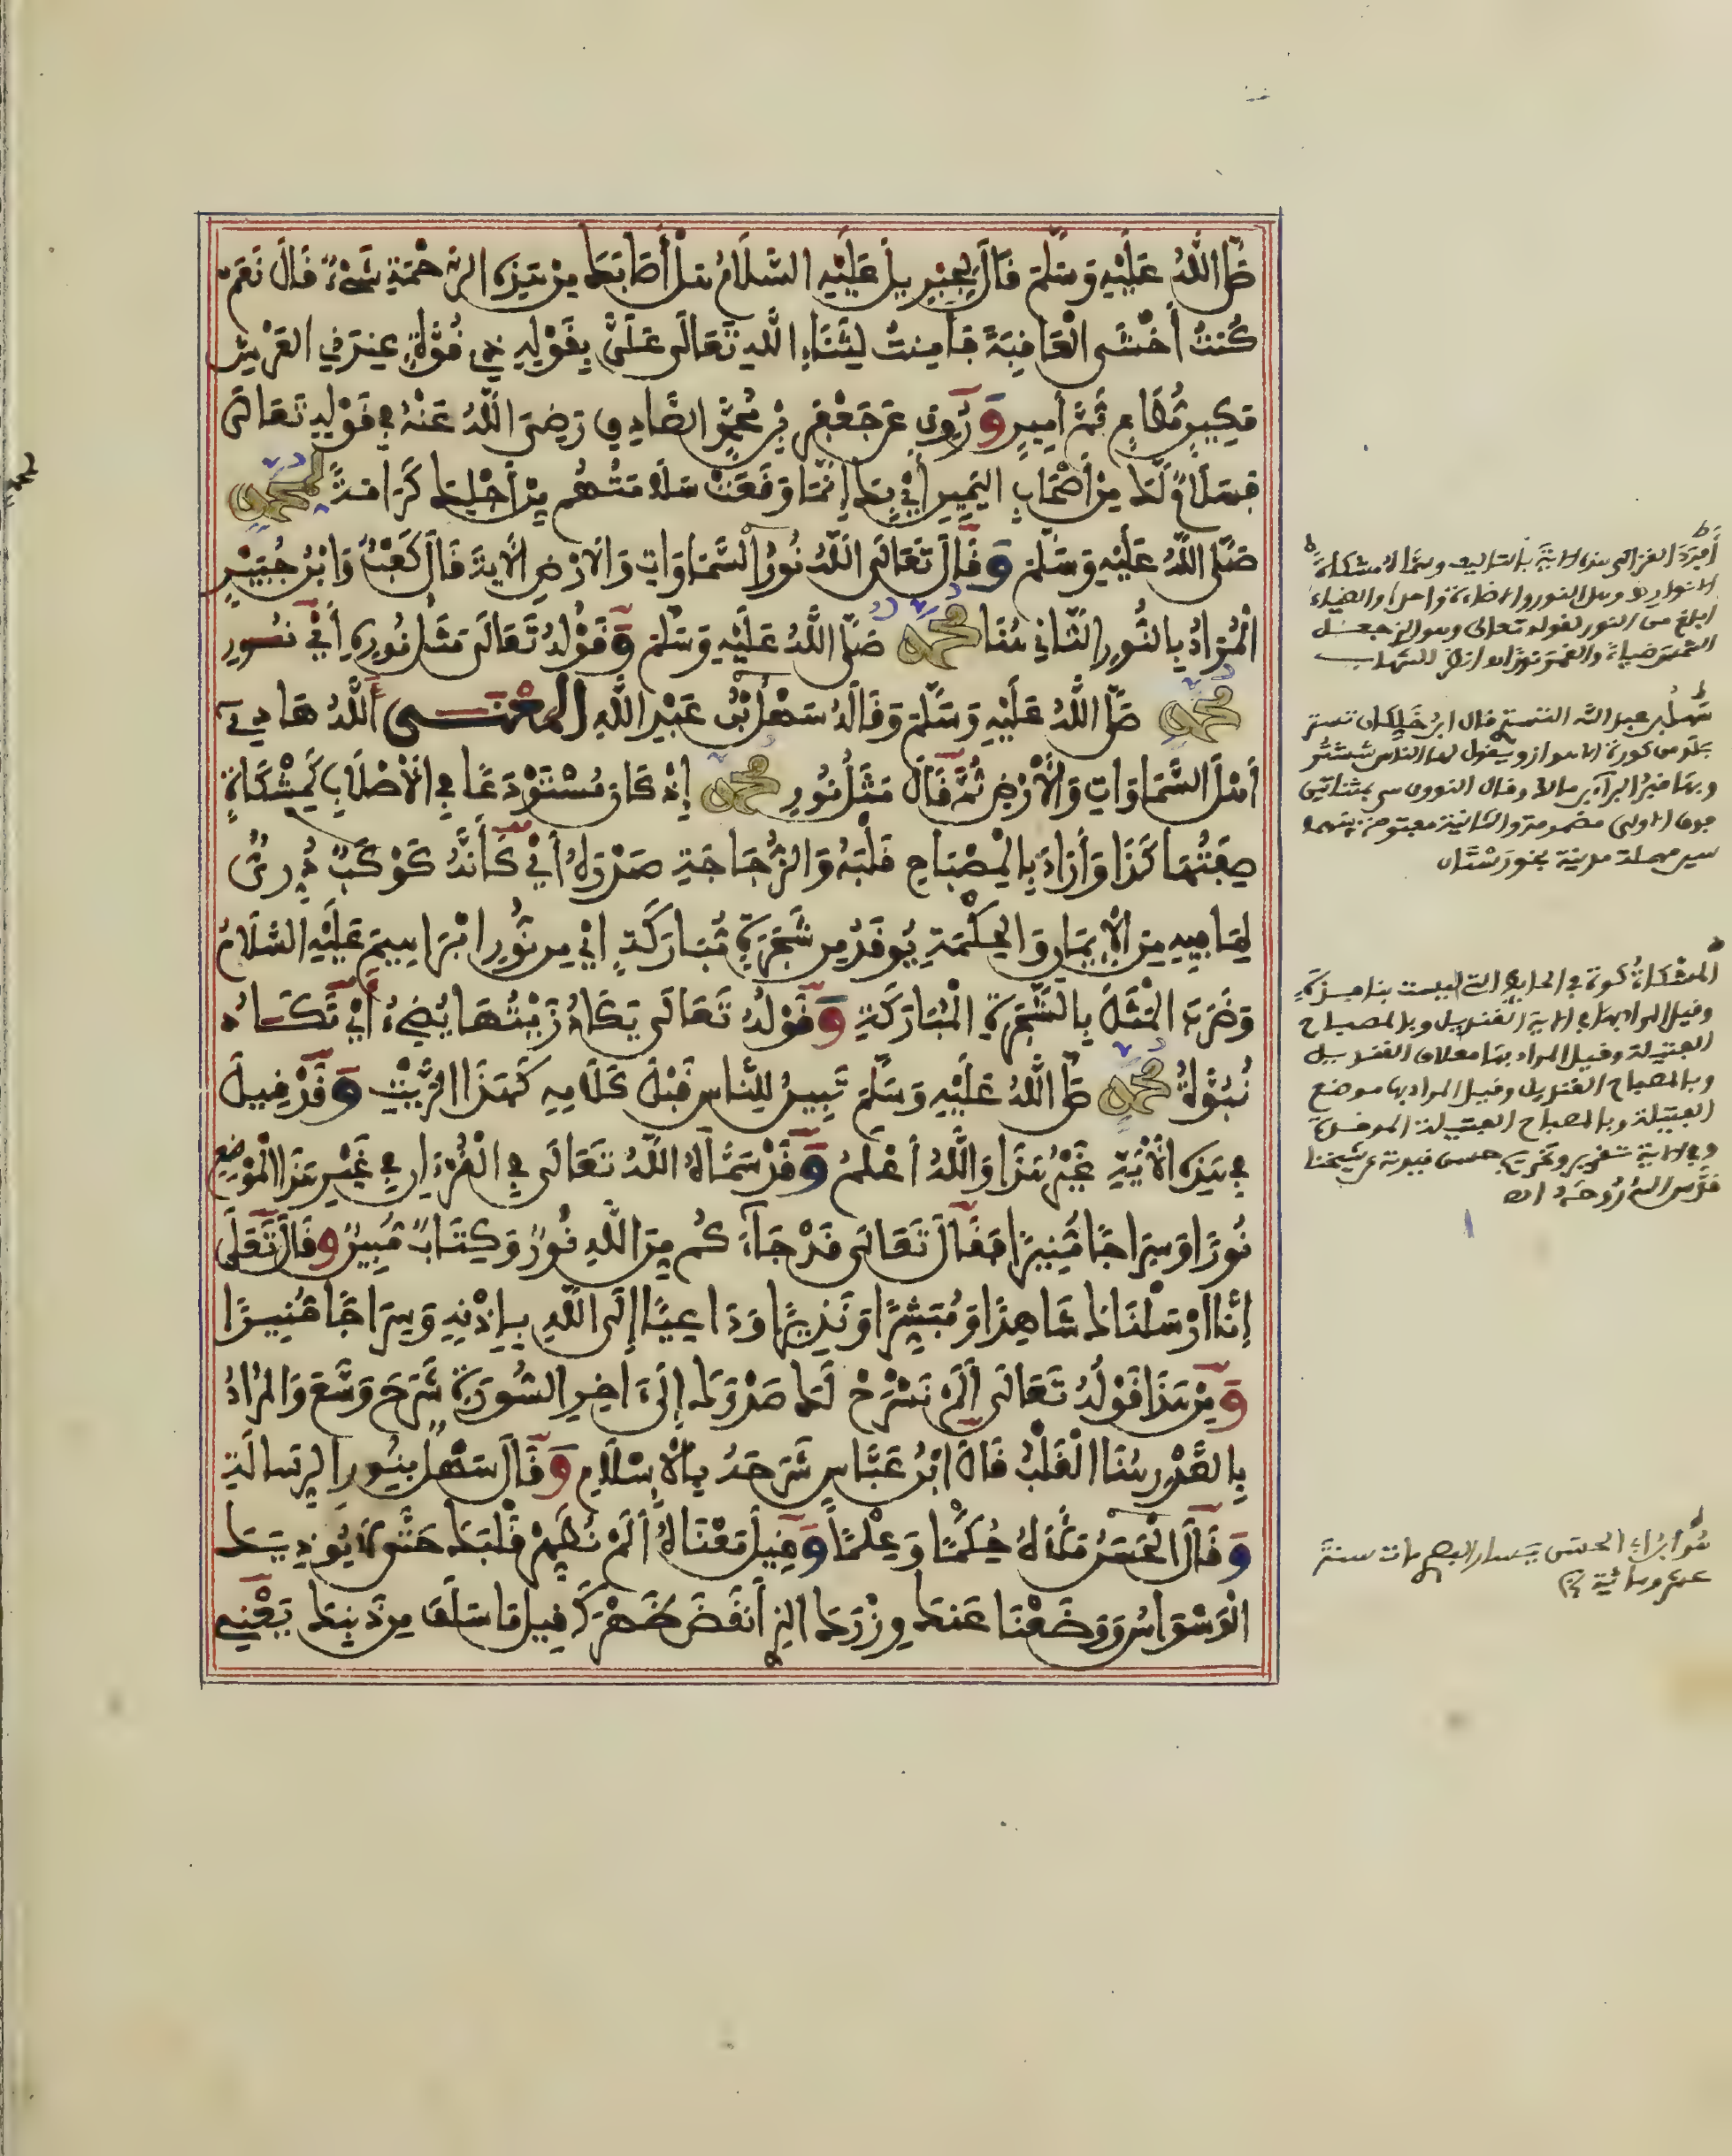 صَلَّى اللَّهُ عَلَيْهِ وَسَلَّمَ قَالَ لِجِبْرِيلَ عَلَيْهِ السَّلَامُ هَلْ أَصَابَكَ مِنْ هَذِهِ الرَّحْمَةِ شَيْءٌ قَالَ نَعَمْ
كُنْتُ أَخْشَى الْعَاقِبَةَ فَأَمِنْتُ لِثَنَاءِ اللَّهِ تَعَالَى عَلَيَّ بِقَوْلِهِ ذِي قُوَّةٍ عِنْدَ ذِي الْعَرْشِ
مَكِينٍ مُطَاعٍ ثَمَّ أَمِينٍ وَرُوِيَ عَنْ جَعْفَرِ بْنِ مُحَمَّدٍ الصَّادِقِ رَضِيَ اللَّهُ عَنْهُ فِي قَوْلِهِ تَعَالَى
فَسَلَامٌ لَكَ مِنْ أَصْحَابِ الْيَمِينِ أَيْ بِكَ إِنَّمَا وَقَعَتْ سَلَامَتُهُمْ مِنْ أَجْلِ كَرَامَةِ مُحَمَّدٍ
صَلَّى اللَّهُ عَلَيْهِ وَسَلَّمَ وَقَالَ تَعَالَى اللَّهُ نُورُ السَّمَاوَاتِ وَالْأَرْضِ الْآيَةَ قَالَ كَعْبٌ وَابْنُ جُبَيْرٍ
الْمُرَادُ بِالنُّورِ الثَّانِي هُنَا مُحَمَّدٌ صَلَّى اللَّهُ عَلَيْهِ وَسَلَّمَ وَقَوْلُهُ تَعَالَى مَثَلُ نُورِهِ أَيْ نُورِ
مُحَمَّدٍ صَلَّى اللَّهُ عَلَيْهِ وَسَلَّمَ وَقَالَهُ سَهْلُ بْنُ عَبْدِ اللَّهِ الْمَعْنَى اللَّهُ هَادِي
أَهْلَ السَّمَاوَاتِ وَالْأَرْضِ ثُمَّ قَالَ مَثَلُ نُورِ مُحَمَّدٍ إِذْ كَانَ مُسْتَوْدَعًا فِي الْأَصْلَابِ كَمِشْكَاةٍ
صِفَتُهَا كَذَا وَأَرَادَ بِالْمِصْبَاحِ قَلْبَهُ وَالزُّجَاجَةِ صَدْرَهُ أَيْ كَأَنَّهُ كَوْكَبٌ دُرِّيٌّ
لِمَا فِيهِ مِنَ الْإِيمَانِ وَالْحِكْمَةِ يُوقَدُ مِنْ شَجَرَةٍ مُبَارَكَةٍ أَيْ مِنْ نُورِ ابْرَاهِيمَ عَلَيْهِ السَّلَامُ
وَضَرَبَ الْمَثَلَ بِالشَّجَرَةِ الْمُبَارَكَةِ وَقَوْلُهُ تَعَالَى يَكَادُ زَيْتُهَا يُضِيءُ أَيْ تَكَادُ
نُبُوَّةُ مُحَمَّدٍ صَلَّى اللَّهُ عَلَيْهِ وَسَلَّمَ تَبِينُ لِلنَّاسِ قَبْلَ كَلَامِهِ كَهَذَا الزَّيْتِ وَقَدْ قِيلَ
فِي هَذِهِ الْآيَةِ غَيْرُ هَذَا وَاللَّهُ أَعْلَمُ وَقَدْ سَمَّاهُ اللَّهُ تَعَالَى فِي الْقُرْءَانِ فِي غَيْرِ هَذَا الْمَوْضِعِ
نُورًا وَسِرَاجًا مُنِيرًا فَقَالَ تَعَالَى قَدْ جَاءَكُم مِنَ اللَّهِ نُورٌ وَكِتَابٌ مُبِينٌ وَقَالَ تَعَلَى
إِنَّا أَرْسَلْنَاكَ شَاهِدًا وَمُبَشِّرًا وَنَذِيرًا وَدَاعِيًا إِلَى اللَّهِ بِإِذْنِهِ وَسِرَاجًا مُنِيرًا
وَمِنْ هَذَا قَوْلُهُ تَعَالَى أَلَمْ نَشْرَحْ لَكَ صَدْرَكَ إِلَى اخِرِ السُّورَةِ شَرَحَ وَسَّعَ وَالْمُرَادُ
بِالصَّدْرِ هُنَا الْقَلْبُ قَالَ ابْنُ عَبَّاسٍ شَرَحَهُ بِالْإِسْلَامِ وَقَالَ سَهْلٌ بِنُورِ الرِّسَالَةِ
وَقَالَ الْحَسَنُ مَلَأَهُ حُكْمًا وَعِلْمًا وَقِيلَ مَعْنَاهُ أَلَمْ نُطَهِّرْ قَلْبَكَ حَتَّى لَا يُوذِيَكَ
الْوَسْوَاسُ وَوَضَعْنَا عَنْكَ وِزْرَكَ الَّذِي أَنْقَضَ ظَهْرَكَ قِيلَ مَا سَلَفَ مِنْ ذَنْبِكَ يَعْنِي
أفرد الغزالي هذه الاية بالتاليف وسماه مشكاة
الانوار
ابلغ من النور لقوله تعالى وهو الذي جعل
الشمس ضياء والقمر نورا
سهل بن عبد الله التستري قال ابن خلكان تستر
بلد من كورة الاهواز ويقول لها الناس ششتر
وبها قبر البرآء بن مالك وقال النووي هي بمثناتين
فوق الاولى مضمومة والثانية مفتوحة بينهما
سين مهملة مدينة بخوزستان
المشكاة كوة في الحايط التي ليست بنافذة
وقيل المراد بها في الاية القنديل وبالمصباح
الفتيلة وقيل المراد بها معلاق القنديل
وبالمصباح القنديل وقيل المراد بها موضع
الفتيلة وبالمصباح الفتيلة الموقودة
وفي الاية تقرير حسن قيدته عن شيخنا
قدس الله روحه
هو ابن ابي الحسن يسار البصري مات سنة
عشر ومائة